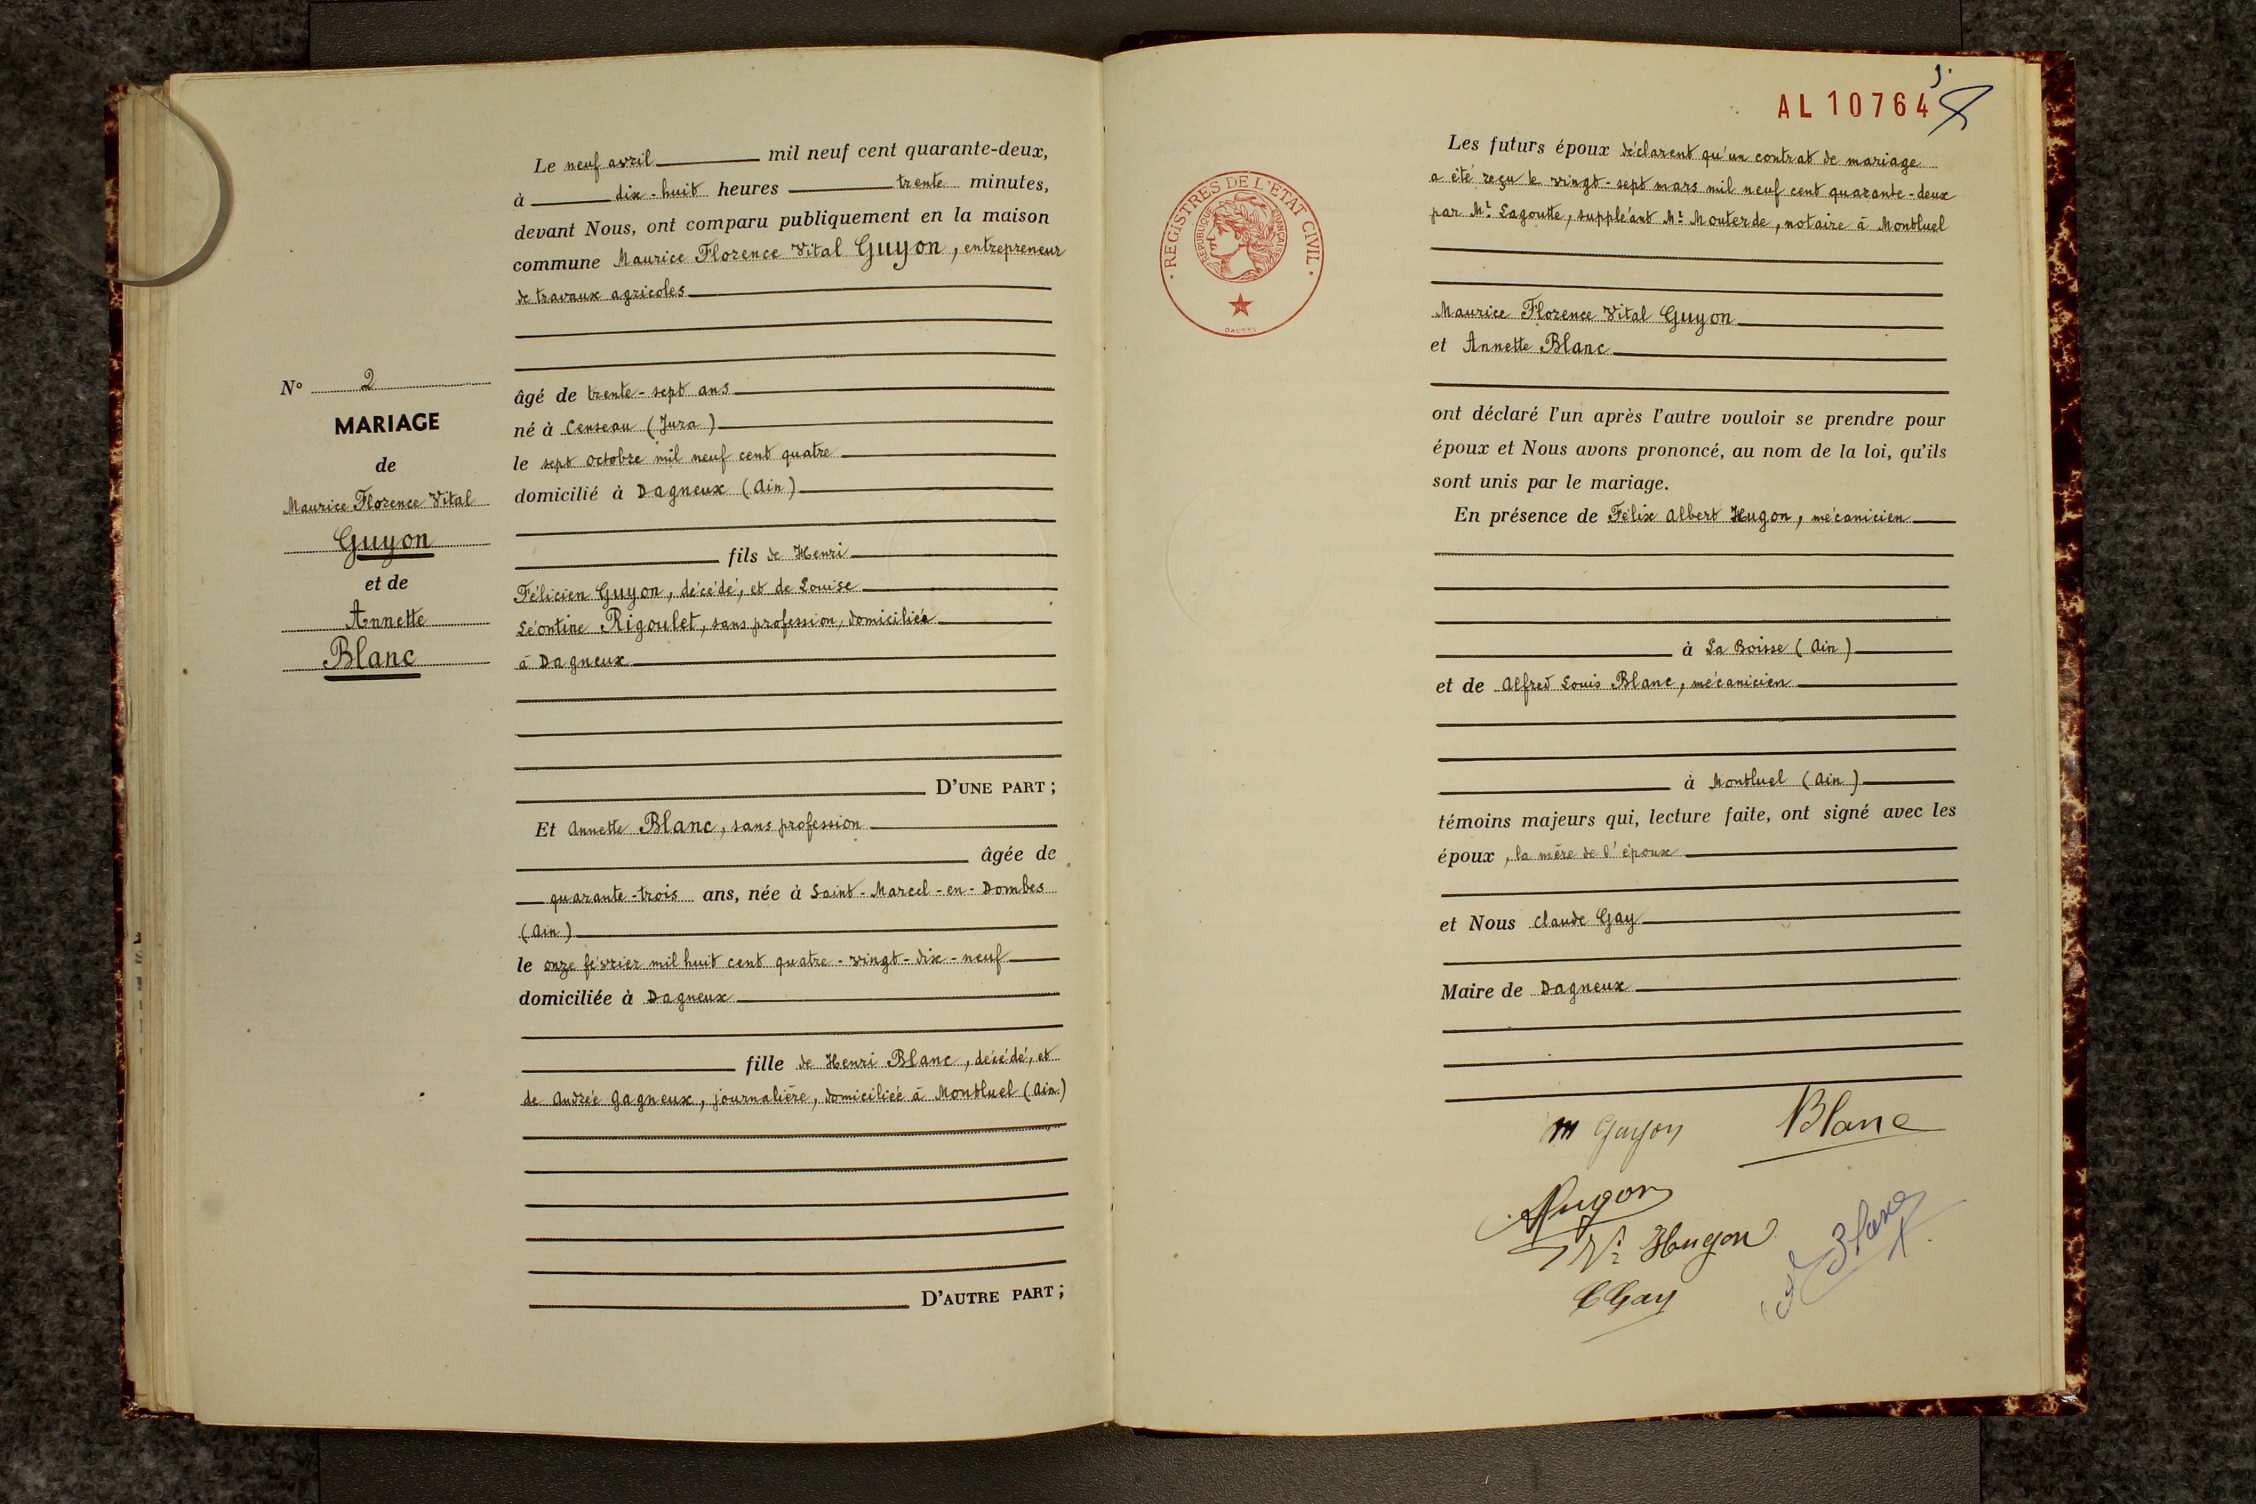 N° 2
MARIAGE
de
Maurice Florence Vital
Guyon
et de
Annette
Blanc
Le neuf avril mil neuf cent quarante-deux,
à dix-huit heures trente minutes,
devant Nous, ont comparu publiquement en la maison
commune Maurice Florence Vital Guyon, entrepreneur
de travaux agricoles
âgé de trente-sept ans
né à Censeau (Jura)
le sept octobre mil neuf cent quatre
domicilié à Dagneux (Ain)
fils de Henri
Félicien Guyon, décédé, et de Louise
Léontine Rigoulet, sans profession, domiciliée
à Dagneux
D'UNE PART ;
Et Annette Blanc, sans profession
âgée de
quarante-trois ans, née à Saint-Marcel-en-Dombes
(Ain)
le onze février mil huit cent quatre-vingt-dix-neuf
domiciliée à Dagneux
fille de Henri Blanc, décédé, et
de Andrée Gagneux, journalière, domiciliée à Montluel (Ain)
D'AUTRE PART ;
AL 10764
REGISTRES DE L'ETAT CIVIL
REPUBLIQUE FRANÇAISE
Les futurs époux déclarent qu'un contrat de mariage
a été reçu le vingt-sept mars mil neuf cent quarante-deux
par Me Lagoutte, suppléant Me Mouterde, notaire à Montluel
Maurice Florence Vital Guyon
et Annette Blanc
ont déclaré l'un après l'autre vouloir se prendre pour
époux et Nous avons prononcé, au nom de la loi, qu'ils
sont unis par le mariage.
En présence de Félix Albert Hugon, mécanicien
à La Boisse (Ain)
et de Alfred Louis Blanc, mécanicien
à Montluel (Ain)
témoins majeurs qui, lecture faite, ont signé avec les
époux, la mère de l'époux
et Nous Claude Gay
Maire de Dagneux
M Guyon Blanc
Hugon
Hugon
Blanc
C Gay